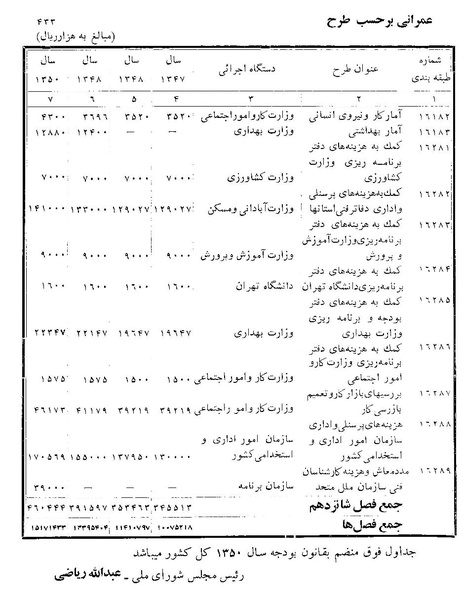 عمرانی برحسب طرح ۴۳۳
(مبالغ به هزارریال)
شماره طبقه بندی عنوان طرح دستگاه اجرائی سال ۱۳۴۷ سال ۱۳۴۸ سال ۱۳۴۸ سال ۱۳۵۰
۱ ۲ ۳ ۴ ۵ ۶ ۷
۱۶۱۸۲ آمارکار ونیروی انسانی وزارت کار وامور اجتماعی ۳۵۲۰ ۳۵۲۰ ۳۶۹۶ ۴۳۰۰
۱۶۱۸۳ آمار بهداشتی وزارت بهداری — — ۱۲۴۰۰ ۱۲۸۸۰
۱۶۲۸۱ کمک به هزینه‌های دفتر
برنامه ریزی وزارت
کشاورزی وزارت کشاورزی ۷۰۰۰ ۷۰۰۰ ۷۰۰۰ ۷۰۰۰
۱۶۲۸۲ کمک به هزینه‌های پرسنلی
واداری دفاتر فنی استانها وزارت آبادانی ومسکن ۱۲۹۰۲۷ ۱۲۹۰۲۷ ۱۳۳۰۰۰ ۱۴۱۰۰۰
۱۶۲۸۳ کمک به هزینه های دفتر
برنامه‌ریزی وزارت آموزش
و پرورش وزارت آموزش وپرورش ۹۰۰۰ ۹۰۰۰ ۹۰۰۰ ۹۰۰۰
۱۶۲۸۴ کمک به هزینه های دفتر
برنامه‌ریزی دانشگاه تهران دانشگاه تهران ۱۶۰۰ ۱۶۰۰ ۱۶۰۰ ۱۶۰۰
۱۶۲۸۵ کمک به هزینه‌های دفتر
بودجه و برنامه ریزی
وزارت بهداری وزارت بهداری ۱۹۶۴۷ ۱۹۶۴۷ ۲۲۱۴۷ ۲۲۳۴۷
۱۶۲۸۶ کمک به هزینه‌های دفتر
برنامه‌ریزی وزارت کار و
امور اجتماعی وزارت کار و امور اجتماعی ۱۵۰۰ ۱۵۰۰ ۱۵۷۵ ۱۵۷۵
۱۶۲۸۷ بررسیهای بازار کار وتعمیم
بازرسی کار وزارت کار و امور اجتماعی ۳۹۲۱۹ ۳۹۲۱۹ ۴۱۱۷۹ ۴۶۱۷۳
۱۶۲۸۸ هزینه‌های پرسنلی واداری
سازمان امور اداری و سازمان امور اداری و
استخدامی کشور استخدامی کشور ۱۳۰۰۰۰ ۱۳۷۹۵۰ ۱۵۵۰۰۰ ۱۷۰۵۶۹
۱۶۲۸۹ مددمعاش وهزینه کارشناسان
فنی سازمان ملل متحد سازمان برنامه — — — ۳۹۰۰۰
جمع فصل شانزدهم ۳۴۵۵۱۳ ۳۵۳۴۶۳ ۳۹۱۵۹۷ ۴۶۰۴۴۴
جمع فصل‌ها ۱۰۰۷۵۲۱۸ ۱۱۴۱۰۷۹۷ ۱۳۳۹۵۴۰۴ ۱۵۱۷۱۴۳۳
جداول فوق منضم بقانون بودجه سال ۱۳۵۰ کل کشور میباشد
رئیس مجلس شورای ملی - عبدالله ریاضی